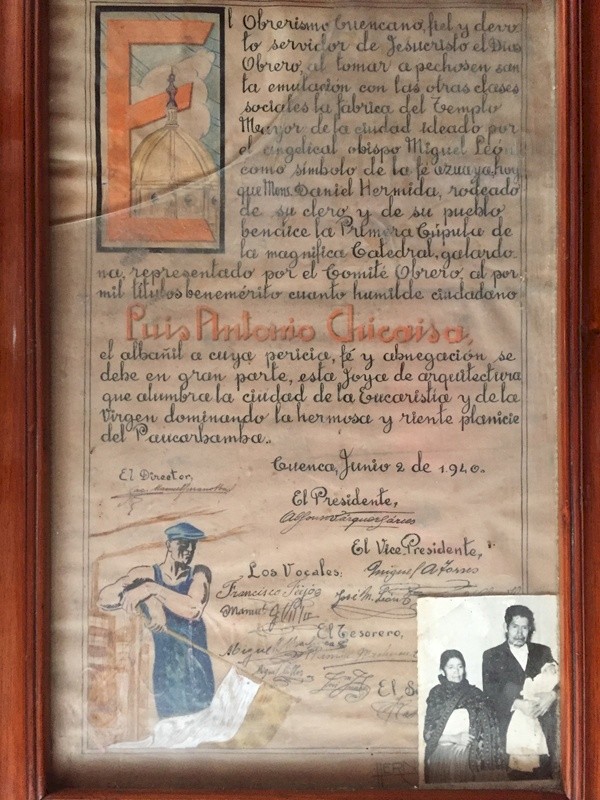 El Obrerismo Cuencano, fiel y devo
to servidor de Jesucristo el Dios
Obrero, al tomar a pechos en san
ta emulación con las otras clases
sociales la fabrica del Templo
Mayor de la ciudad ideado por
el angelical obispo Miguel León
como símbolo de la fé azuaya, hoy
que Mons. Daniel Hermida, rodeado
de su clero y de su pueblo
bendice la Primera Cúpula de
la magnifica Catedral, galardo-
na, representado por el Comité Obrero, al por
mil títulos benemérito cuanto humilde ciudadano
Luis Antonio Chicaisa,
el albañil a cuya pericia, fé y abnegación se
debe en gran parte, esta Joya de arquitectura
que alumbra la ciudad de la Eucaristía y de la
Virgen dominando la hermosa y riente planicie
del Paucarbamba.
Cuenca, Junio 2 de 1940.
El Director,
El Presidente,
El Vice Presidente,
Miguel A.
Los Vocales:
Francisco
Manuel
José M.
El Tesorero,
Miguel
El